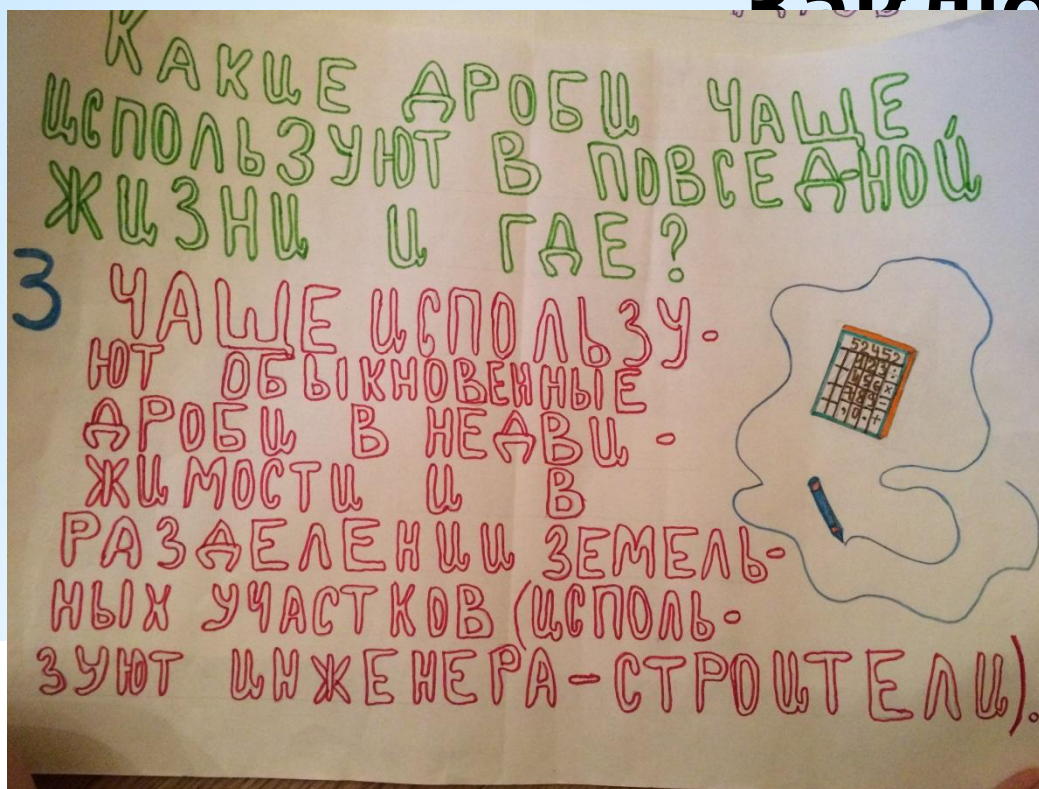 КАКИЕ ДРОБИ ЧАЩЕ
ИСПОЛЬЗУЮТ В ПОВСЕДНОЙ
ЖИЗНИ И ГДЕ?
3
ЧАЩЕ ИСПОЛЬЗУ-
ЮТ ОБЫКНОВЕННЫЕ
ДРОБИ В НЕДВИ-
ЖИМОСТИ И В
РАЗДЕЛЕНИИ ЗЕМЕЛЬ-
НЫХ УЧАСТКОВ (ИСПОЛЬ-
ЗУЮТ ИНЖЕНЕРА-СТРОИТЕЛИ).
52452